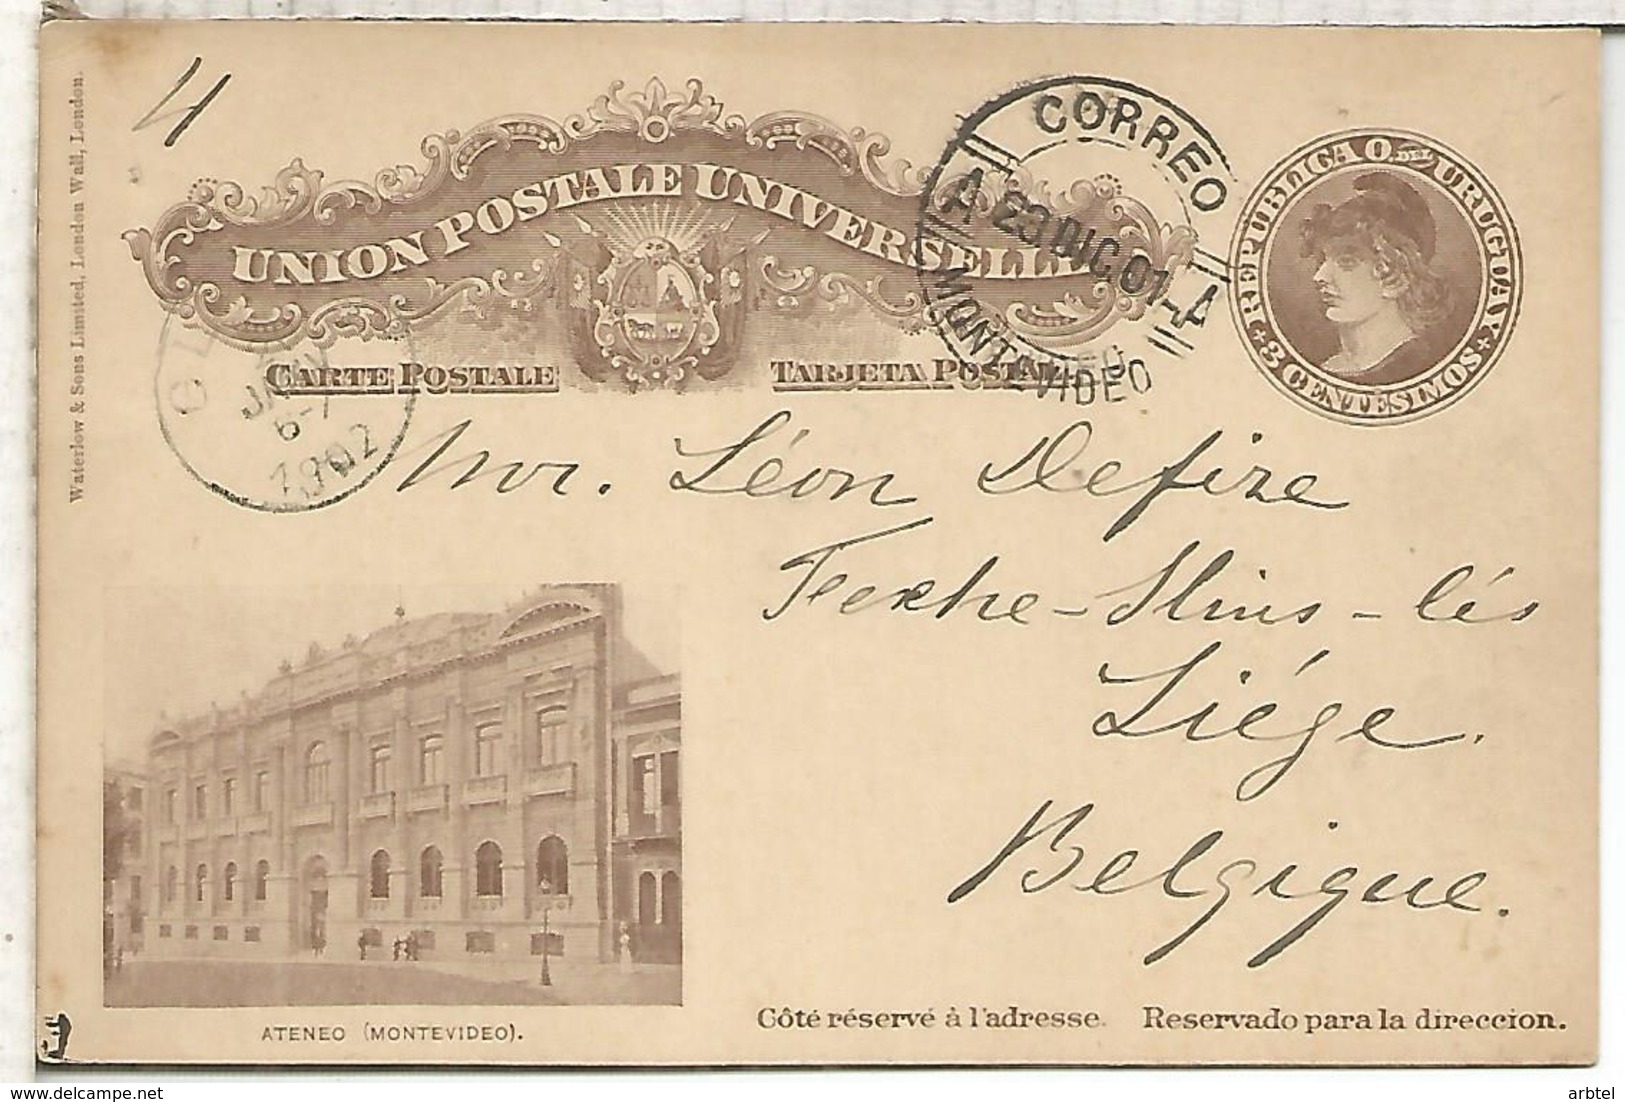 4
Waterlow & Sons Limited, London Wall, London.
UNION POSTALE UNIVERSELLE
CARTE POSTALE TARJETA POSTAL
CORREO
A 23 DIC 01-A
MONTEVIDEO
REPUBLICA O DEL URUGUAY
3 CENTESIMOS
6-7
1902
Mr. Léon Defize
Fexhe-Slins-lés
Liége.
Belgique.
ATENEO (MONTEVIDEO).
Côté réservé à l'adresse. Reservado para la direccion.
arbtel